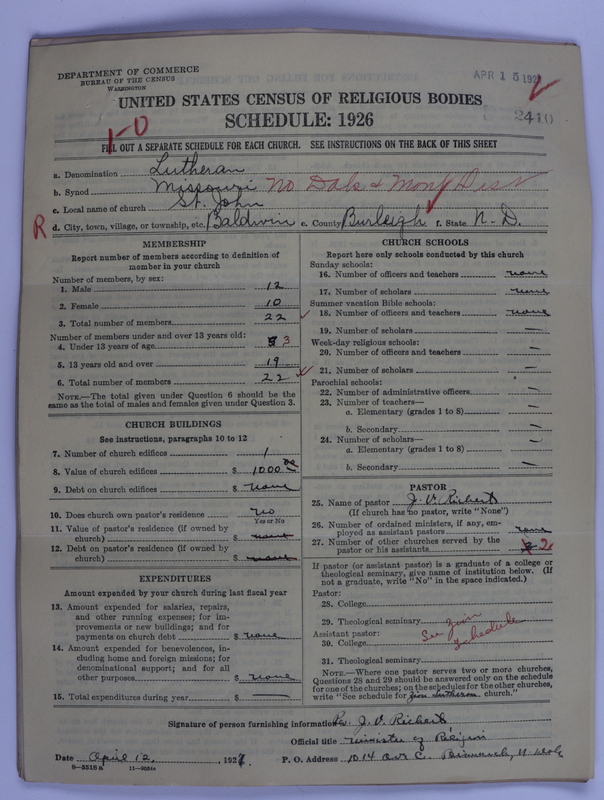 DEPARTMENT OF COMMERCE
BUREAU OF THE CENSUS
WASHINGTON
APR 15 192
UNITED STATES CENSUS OF RELIGIOUS BODIES
SCHEDULE: 1926
2410
1-0
FILL OUT A SEPARATE SCHEDULE FOR EACH CHURCH. SEE INSTRUCTIONS ON THE BACK OF THIS SHEET
a. Denomination Lutheran
b. Synod Missouri No Dak & Mont Dist
c. Local name of church St. John
R d. City, town, village, or township, etc. Baldwin e. County Burleigh f. State N-D.
MEMBERSHIP
Report number of members according to definition of
member in your church
Number of members, by sex:
1. Male 12
2. Female 10
3. Total number of members 22
Number of members under and over 13 years old:
4. Under 13 years of age 3
5. 13 years old and over 19
6. Total number of members 22
NOTE.—The total given under Question 6 should be the
same as the total of males and females given under Question 3.
CHURCH BUILDINGS
See instructions, paragraphs 10 to 12
7. Number of church edifices 1
8. Value of church edifices $ 1000.00
9. Debt on church edifices $ none
10. Does church own pastor's residence No
Yes or No
11. Value of pastor's residence (if owned by
church) $ none
12. Debt on pastor's residence (if owned by
church) $ none
EXPENDITURES
Amount expended by your church during last fiscal year
13. Amount expended for salaries, repairs,
and other running expenses; for im-
provements or new buildings; and for
payments on church debt $ none
14. Amount expended for benevolences, in-
cluding home and foreign missions; for
denominational support; and for all
other purposes $ none
15. Total expenditures during year $ —
CHURCH SCHOOLS
Report here only schools conducted by this church
Sunday schools:
16. Number of officers and teachers none
17. Number of scholars none
Summer vacation Bible schools:
18. Number of officers and teachers none
19. Number of scholars —
Week-day religious schools:
20. Number of officers and teachers —
21. Number of scholars —
Parochial schools:
22. Number of administrative officers —
23. Number of teachers—
a. Elementary (grades 1 to 8) —
b. Secondary —
24. Number of scholars—
a. Elementary (grades 1 to 8) —
b. Secondary —
PASTOR
25. Name of pastor J. V. Richert
(If church has no pastor, write "None")
26. Number of ordained ministers, if any, em-
ployed as assistant pastors none
27. Number of other churches served by the
pastor or his assistants 2
If pastor (or assistant pastor) is a graduate of a college or
theological seminary, give name of institution below. (If
not a graduate, write "No" in the space indicated.)
Pastor:
28. College
29. Theological seminary
See Zion
Schedule
Assistant pastor:
30. College
31. Theological seminary
NOTE.—Where one pastor serves two or more churches,
Questions 28 and 29 should be answered only on the schedule
for one of the churches; on the schedules for the other churches,
write "See schedule for Zion Lutheran church."
Signature of person furnishing information Rev. J. V. Richert,
Official title Minister of Religion
Date April 12, 1927. P. O. Address 1014 Ave C. Bismarck, N. Dak
8—5518a 11—9051a